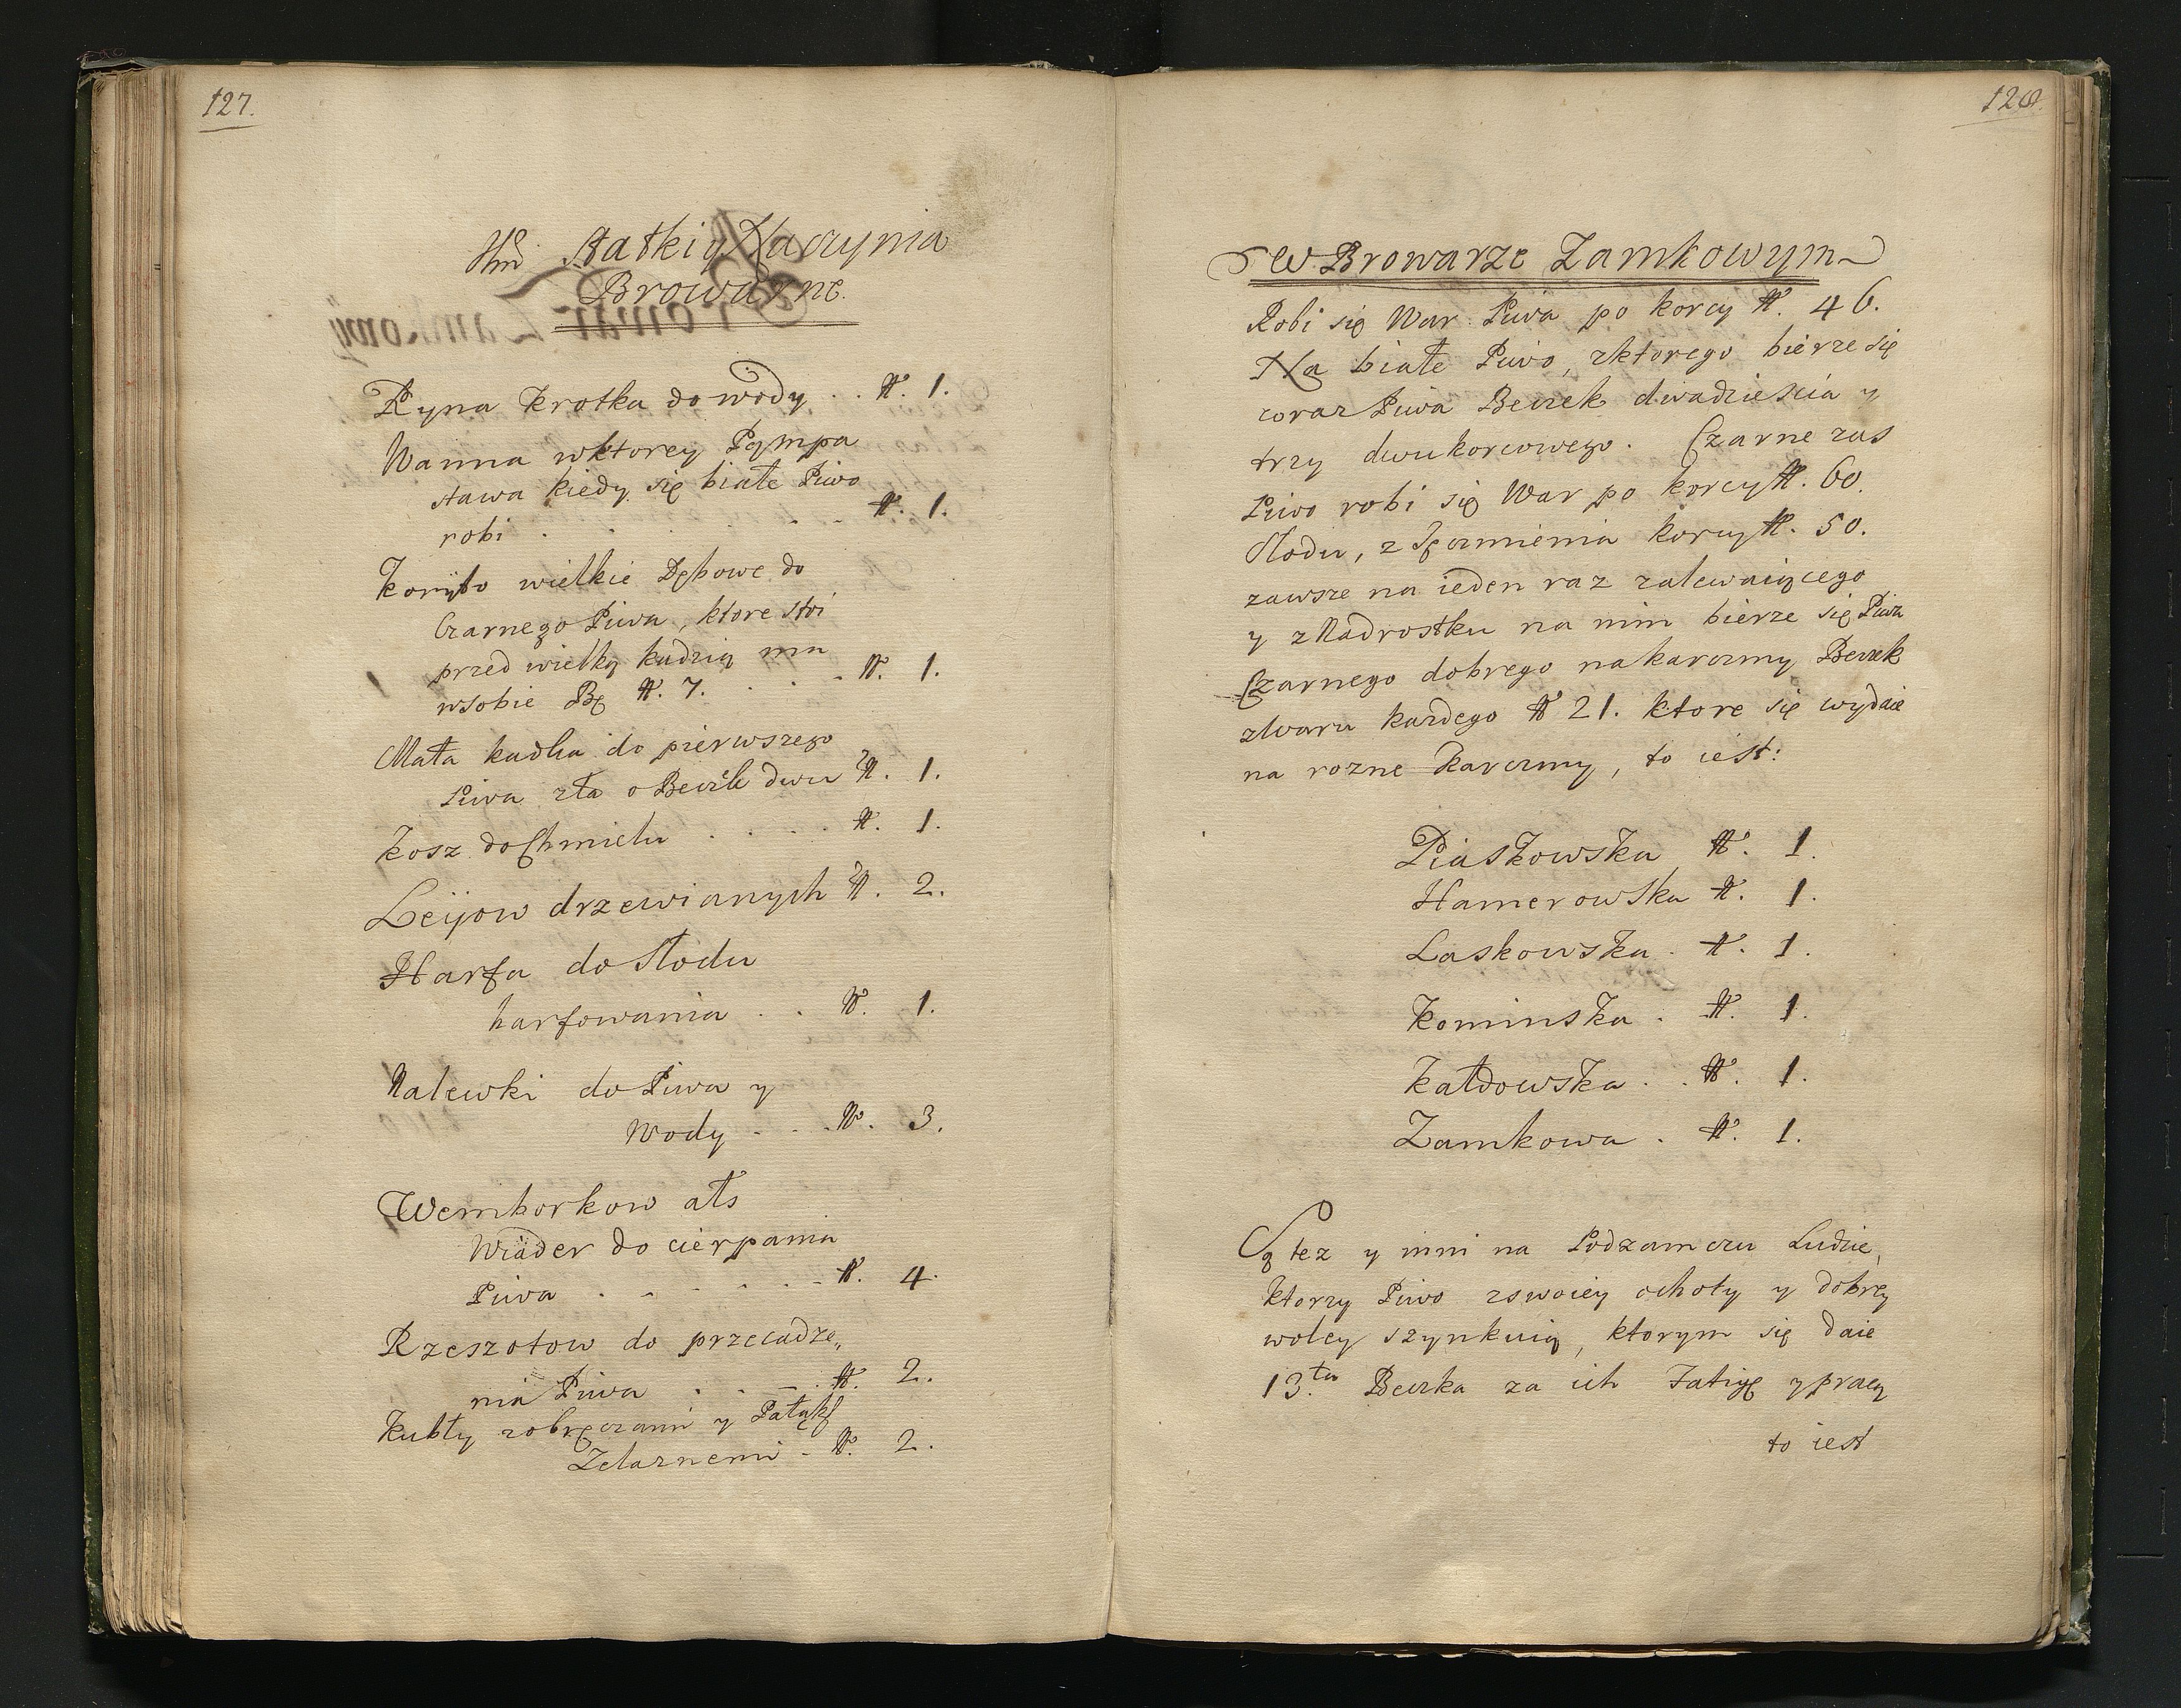 127.
Statki y Naczynia
Browarne.
Ryna krotka do wody . . N. 1.
Wanna wktorey Pąmpa
stawa kiedy się białe Piwo
robi . . . . N. 1.
Koryto wielkie Dębowe do
Czarnego Piwa, ktore stoi
przed wielką kadzią ma
wsobie Be N. 7. . . . N. 1.
Mała kadka do pierwszego
Piwa zła o Beczk dwu N. 1.
Kosz do Chmielu . . . . N. 1.
Leyow drzewianych N. 2.
Harfa do Słodu
harfowania . . N. 1.
Nalewki do Piwa y
Wody . . . N. 3.
Wemborkow als
Wiader do cierpania
Piwa . . . . . N. 4.
Rzeszotow do przecadze„
nia Piwa . . . N. 2.
Kubły zobręczami y Pałąk
Zelaznemi . N. 2.
128.
W Browarze Zamkowym
Robi się War Piwa po korcy N. 46.
Na białe Piwo, zktorego bierze się
zwar Piwa Beczek dwadziescia y
trzy dwukorcowego. Czarne zas
Piwo robi się War po korcy N. 60.
Słodu, z Ięczmienia korcy N. 50.
zawsze na ieden raz zalewaiącego
y z Nadrostku na nim bierze się Piwa
Czarnego dobrego na karczmy Beczek
zwaru kazdego N 21. ktore się wydaie
na rozne Karczmy, to iest:
Piaskowska N. 1.
Hamerowska N. 1.
Laskowska . N. 1.
Kominska . N. 1.
Kałdowska . . N. 1.
Zamkowa . N. 1.
Są tez y inni na Podzamczu Ludzie,
ktorzy Piwo zswoiey ochoty y dobrey
woley szynkuią, ktorym się daie
13.ta Beczka za ich Fatigę y pracą
to iest